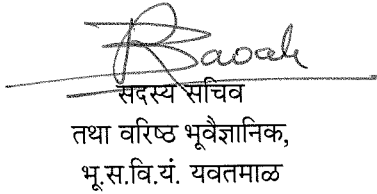 सदस्य सचिव
तथा वरिष्ठ भूवैज्ञानिक,
भू.स.वि.यं. यवतमाळ